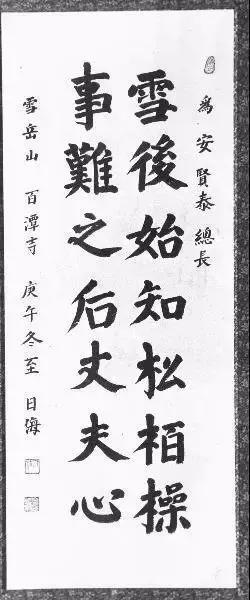 爲 安賢泰 總長
雪後始知松柏操
事難之后丈夫心
雪岳山 百潭寺 庚午冬至 日海